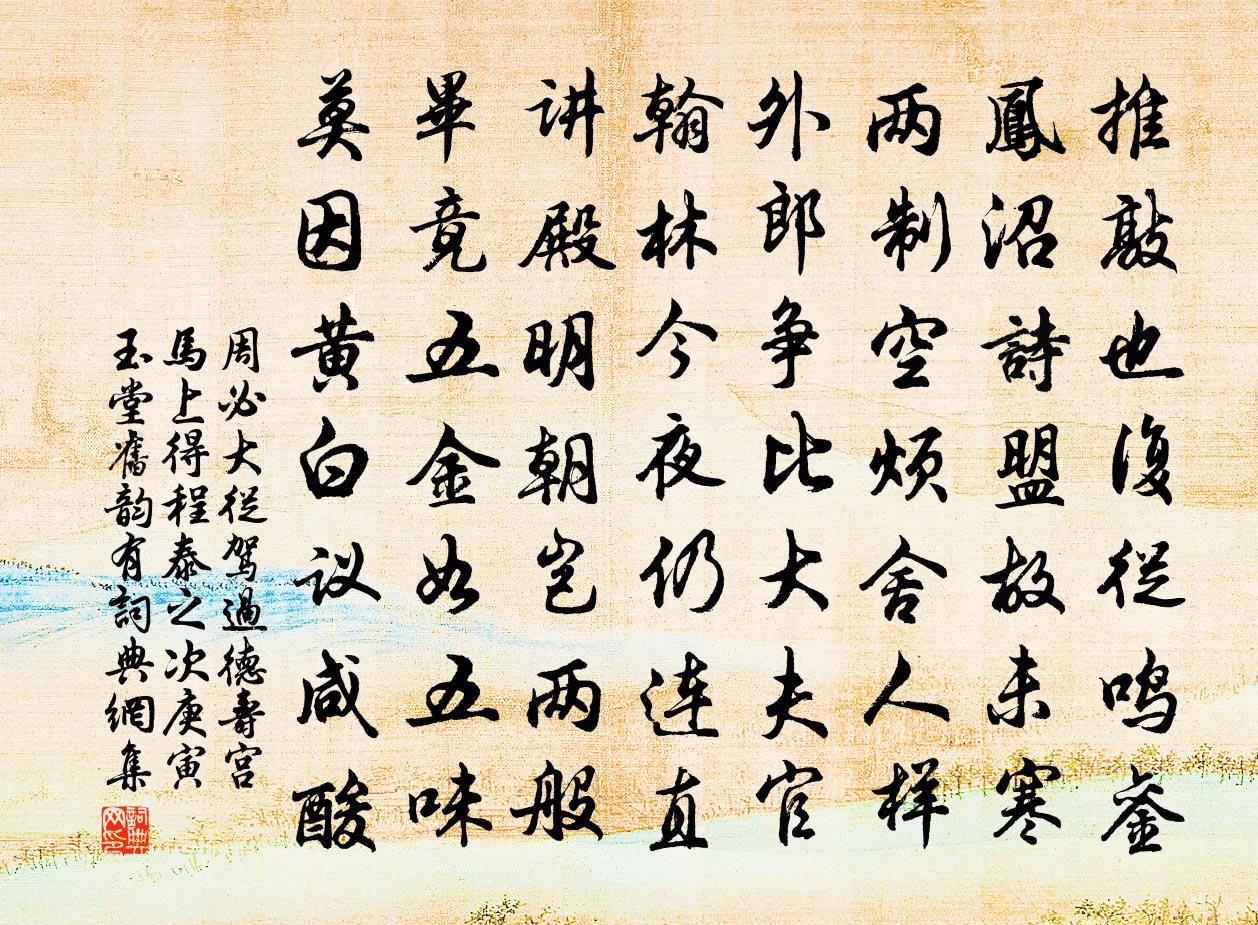 推敲也復從鸣銮
鳳沼詩盟故未寒
两制空烦舍人样
外郎争比大夫官
翰林今夜仍连直
讲殿明朝岂两般
畢竟五金如五味
莫因黄白议咸酸
周必大從驾過德壽宫
馬上得程泰之次庚寅
玉堂舊韵有詞典網集